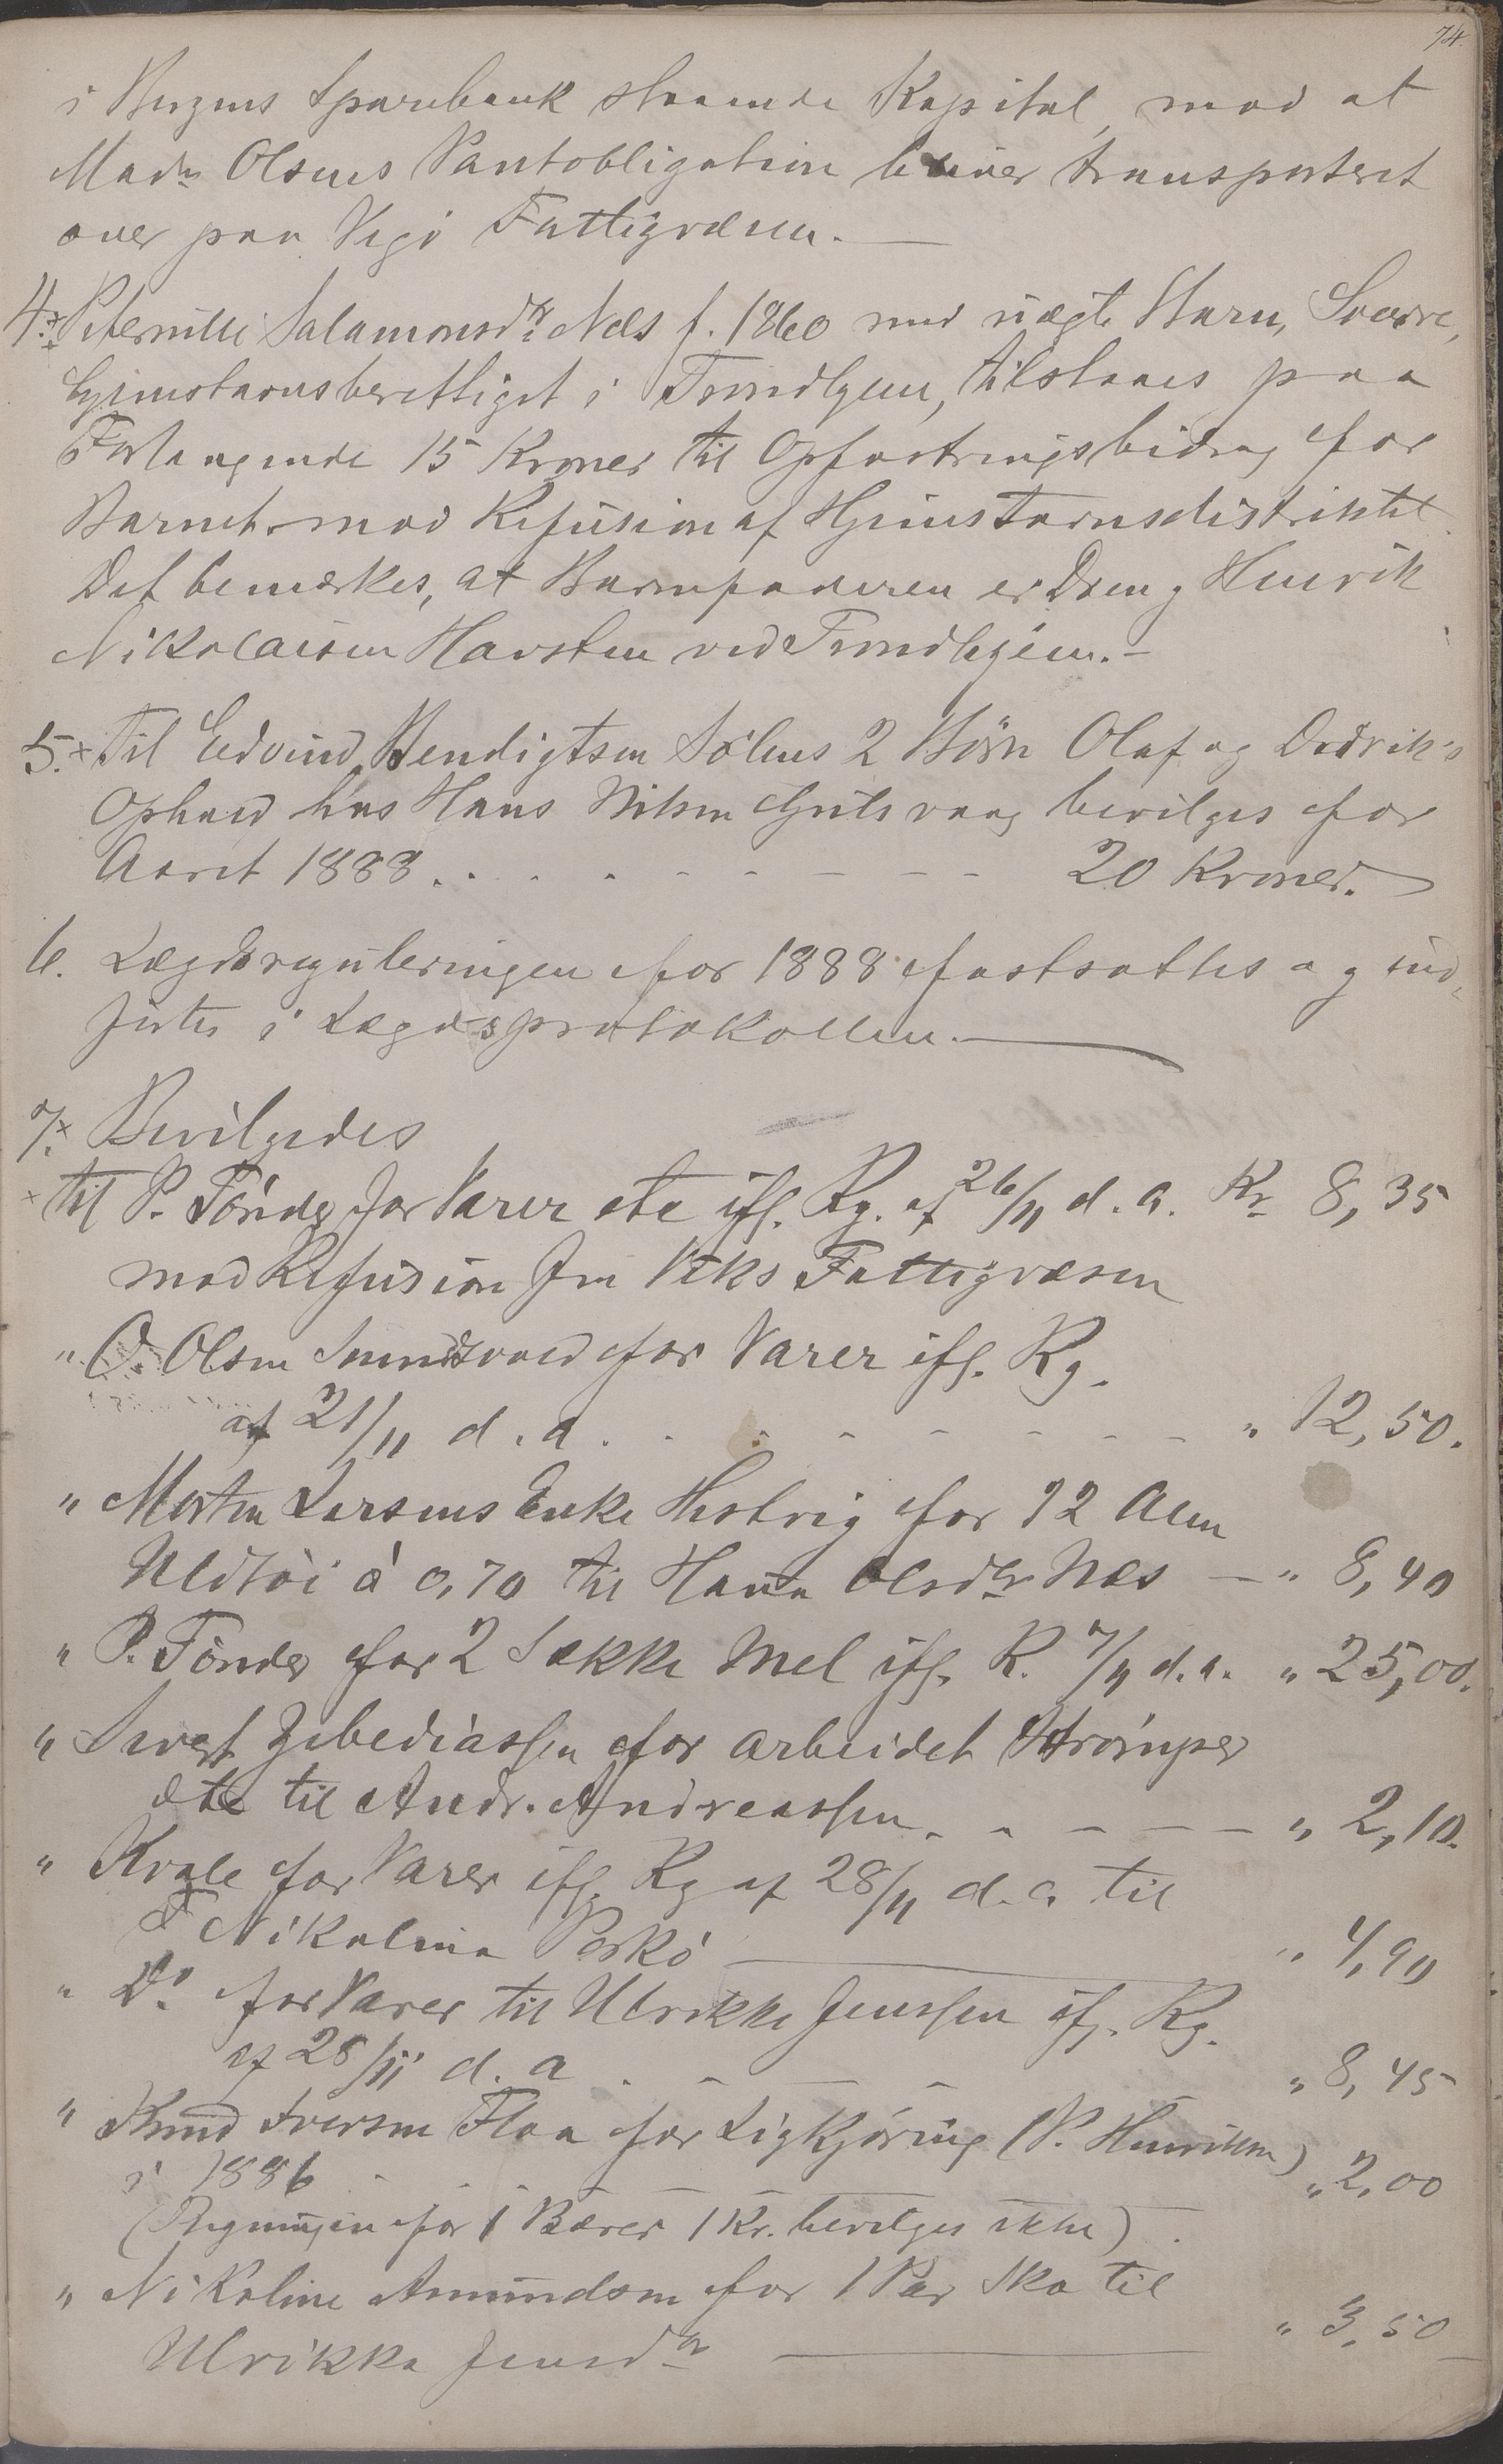 74.
i Bergens Sparebank staaende Kapital, mod at
Mad. Olsens Pantobligation bliver transporteret
over paa Vegø Fattigvæsen.
4. Peternille Salamonsdtr. Næs f. 1860 med uægte Barn, Sverre,
hjemstavnsberettiget i Trondhjem, tilstaaes paa
Forlangende 15 Kroner til Opfostringsbidrag for
Barnet mod Refusion af Hjemstavnsdistriktet.
Det bemærkes, at Barnefaderen er Dreng Henrik
Nikolaisen Havsten ved Trondhjem.
5. Til Edvind Bendigtsen Sølens 2 Børn Olaf og Didrik's
Ophold hos Hans Nilsen Grutsvaag bevilges for
Aaret 1888 20 Kroner.
6. Lægdsreguleringen for 1888 fastsattes og ind-
førtes i Lægdsprotokollen.
7. Bevilgedes
til P. Tønder for Varer etc ifl. Rg. af 26/11 d. a. Kr 8,35
mod Refusion fra Viks Fattigvæsen
" O. Olsen Sundsvold for Varer ifl. Rg.
af 21/11 d. a. " 12,50.
" Morten Larsens Enke Hestvig for 12 Alen
Uldtøi à 0,70 til Hanna Olsdtr Næs " 8,40
" P. Tønder for 2 Sække Mel ifl. R. 7/11 d. a. " 25,00.
" Sivert Zebediassen for arbeidet Strømper
etc til Andr. Andreassen " 2,10.
" Kvale for Varer ifl. Rg af 28/11 d. a. til
Nikolina Porkø " 4,90
" Do. for Varer til Ulrikke Jenssen ifl. Rg.
af 28/11 d. a " 8,45
" Knud Iversen Floa for Ligkjøring (P. Henriksen)
i 1886 " 2,00
(Regningen for 1 Bærer 1 Kr. bevilges ikke).
" Nikoline Amundsen for 1 Par Sko til
Ulrikka Jensdtr " 3,50